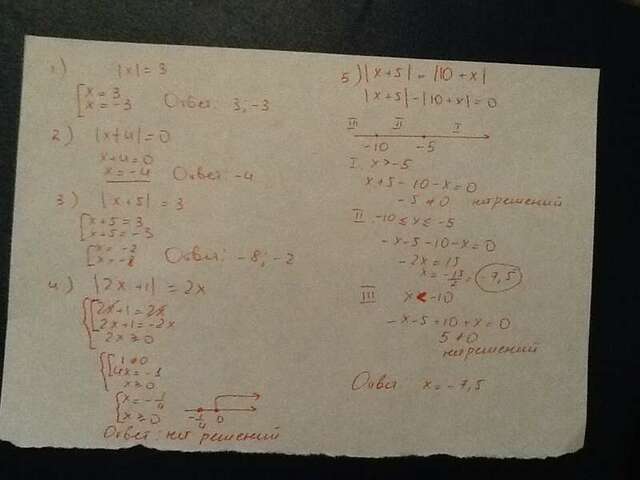 1) |x| = 3
[x = 3
x = -3 Ответ: 3; -3
2) |x+4| = 0
x+4 = 0
x = -4 Ответ: -4
3) |x+5| = 3
[x+5 = 3
x+5 = -3
[x = -2
x = -8 Ответ: -8; -2
4) |2x+1| = 2x
{[2x+1 = 2x
2x+1 = -2x
2x ≥ 0
{[1 ≠ 0
4x = -1
x ≥ 0
{x = -1/4
x ≥ 0 -1/4 0
Ответ: нет решений
5) |x+5| = |10+x|
|x+5| - |10+x| = 0
III II I
-10 -5
I. x > -5
x+5-10-x = 0
-5 ≠ 0 нет решений
II. -10 ≤ x ≤ -5
-x-5-10-x = 0
-2x = 15
x = -15/2 = -7,5
III x < -10
-x-5+10+x = 0
5 ≠ 0
нет решений
Ответ: x = -7,5